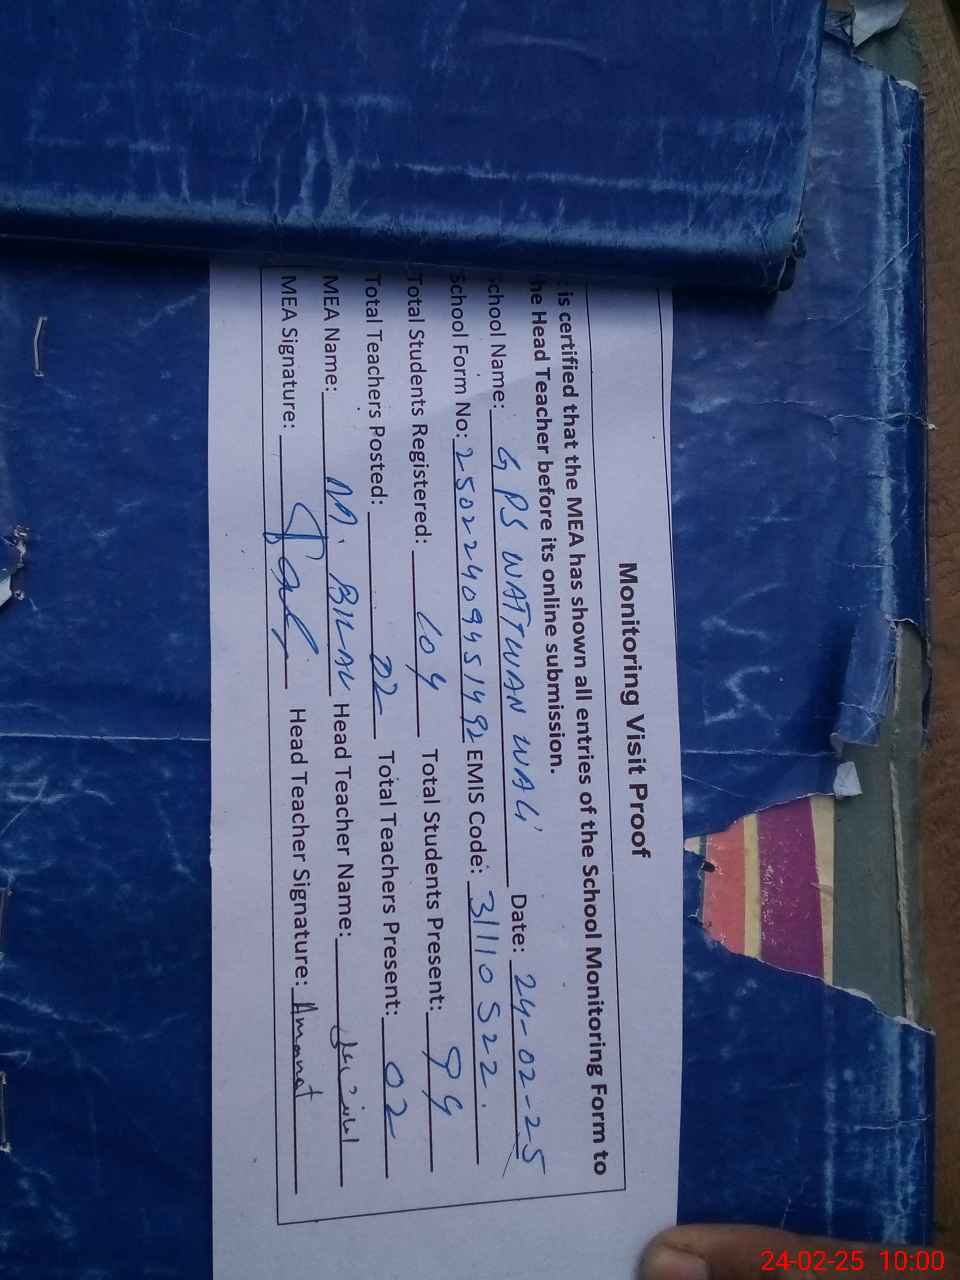 Monitoring Visit Proof
is certified that the MEA has shown all entries of the School Monitoring Form to
he Head Teacher before its online submission.
chool Name: GPS WATTWAN WALI Date: 24-02-25
School Form No: 25022409451492 EMIS Code: 31110522.
Total Students Registered: Total Students Present:
Total Teachers Posted: 02 Total Teachers Present: 02
MEA Name: M. BILAL Head Teacher Name:
MEA Signature: Head Teacher Signature: Amanat
24-02-25 10:00